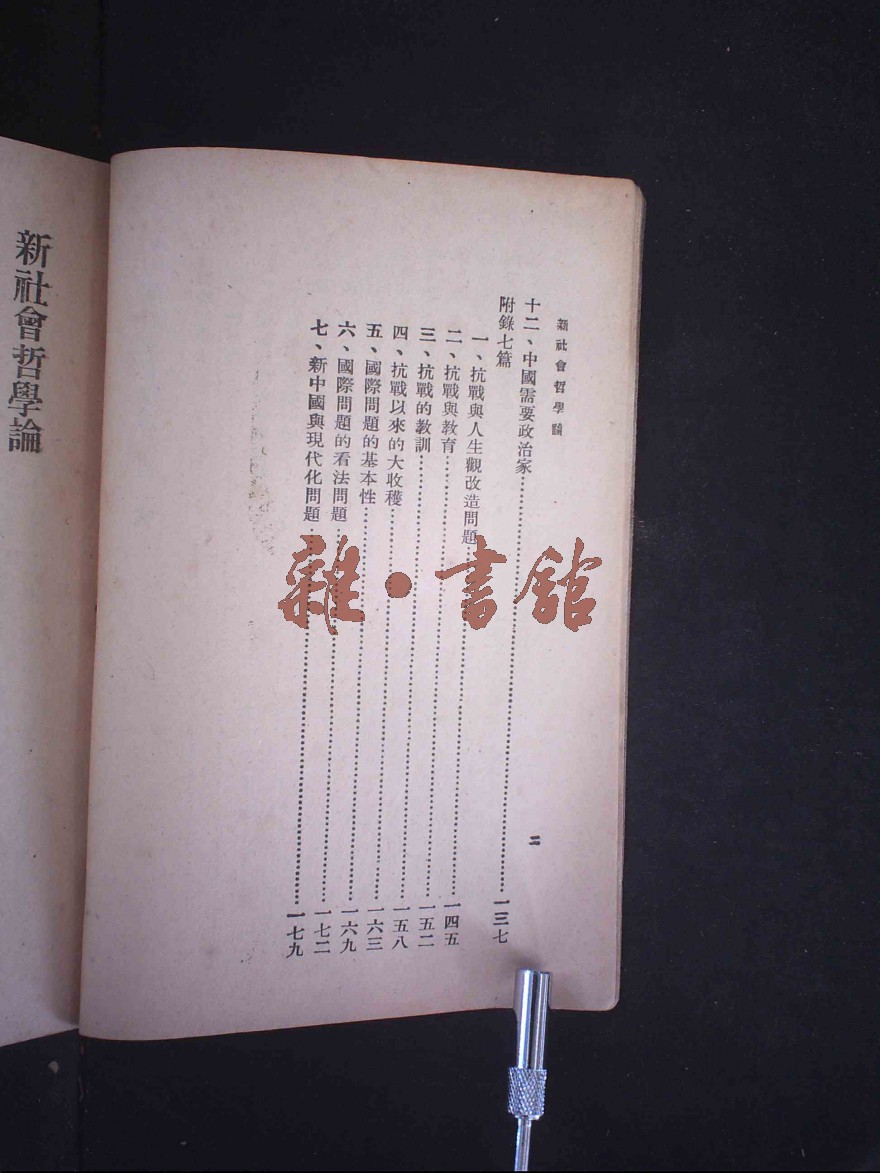 新社會哲學論
二
十二、中國需要政治家……一三七
附錄七篇
一、抗戰與人生觀改造問題……一四五
二、抗戰與教育……一五二
三、抗戰的教訓……一五八
四、抗戰以來的大收穫……一六三
五、國際問題的基本性……一六九
六、國際問題的看法問題……一七二
七、新中國與現代化問題……一七九
新社會哲學論
雜·書館